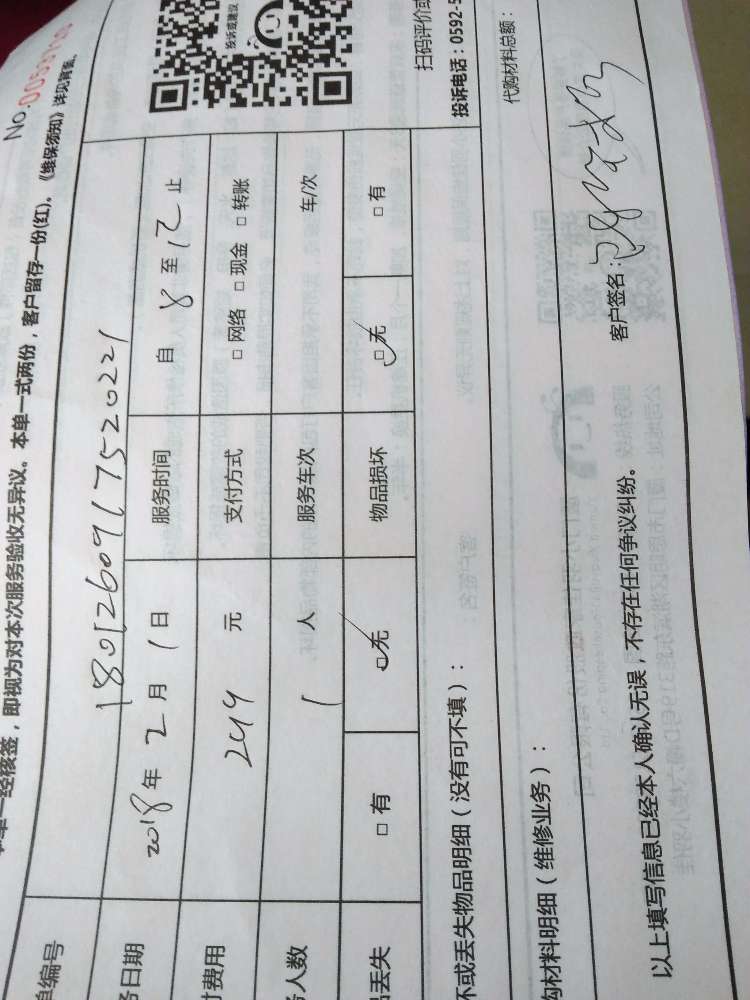 No.
单一经核签，即视为对本次服务验收无异议。本单一式两份，客户留存一份(红)。《维保须知》详见背面。
单编号 1801260917520221
务日期 2018年2月1日 服务时间 自 8 至 12 止
付费用 249 元 支付方式 □网络 □现金 □转账
务人数 1 人 服务车次 车/次
品丢失 □有 □无 物品损坏 □无 □有
投诉或建议
扫码评价或
投诉电话：0592-5
坏或丢失物品明细（没有可不填）：
购材料明细（维修业务）：
代购材料总额：
以上填写信息已经本人确认无误，不存在任何争议纠纷。
客户签名：